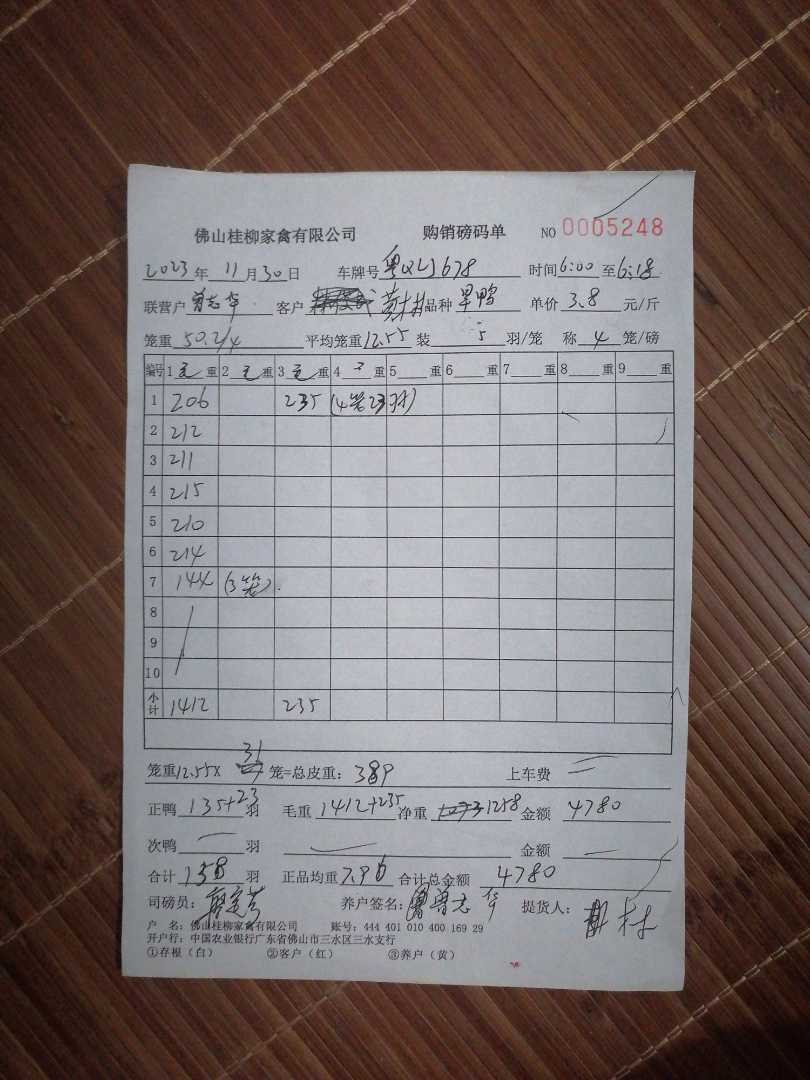 佛山桂柳家禽有限公司 购销磅码单 NO 0005248
2023年 11月30日 车牌号 粤 时间6:00至6:18
联营户 曾志华 客户 品种 旱鸭 单价 3.8 元/斤
笼重 50.2/4 平均笼重12.55 装 5 羽/笼 称 4 笼/磅
编号 1毛重 2毛重 3毛重 4 重 5 重 6 重 7 重 8 重 9 重
1 206 235 (4笼23羽)
2 212
3 211
4 215
5 210
6 214
7 144 (3笼).
8
9
10
小计 1412 235
笼重12.55X 31 笼=总皮重: 389 上车费
正鸭 135+23 羽 毛重 1412+235 净重 1258 金额 4780
次鸭 羽 金额
合计 158 羽 正品均重 7.96 合计总金额 4780
司磅员: 养户签名: 曾志华 提货人:
户 名: 佛山桂柳家禽有限公司 账号: 444 401 010 400 169 29
开户行: 中国农业银行广东省佛山市三水区三水支行
①存根(白) ②客户(红) ③养户(黄)